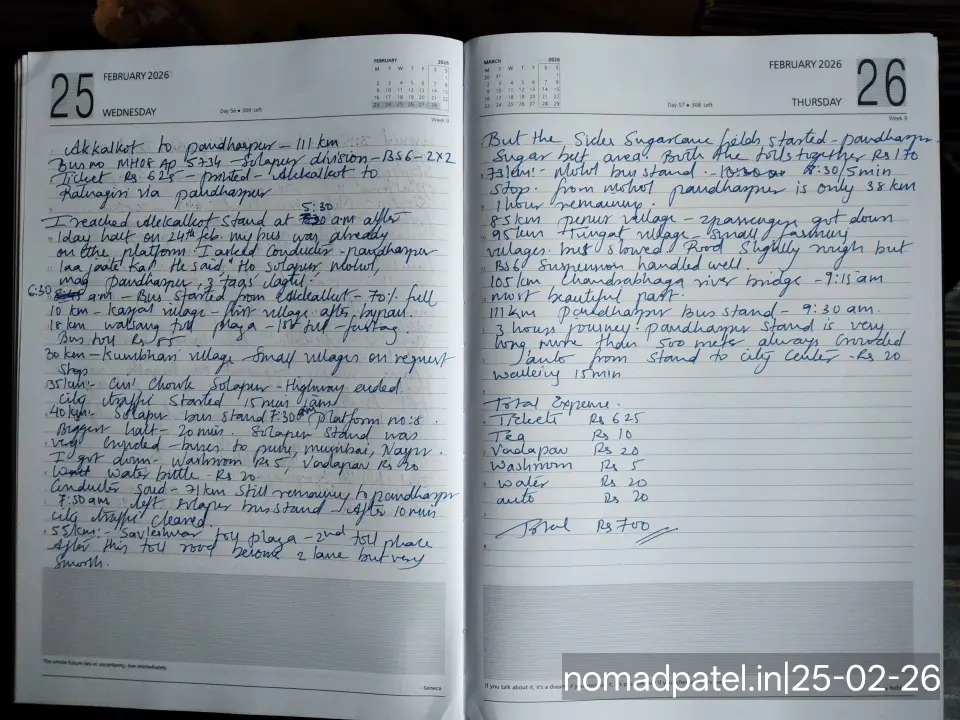 25
FEBRUARY 2026
WEDNESDAY
Day 56 • 309 Left
FEBRUARY 2026
Week 9
Akkalkot to pandharpur - 111 km
Bus no MH08 AP 5734 - Solapur division - BS6 - 2x2
Ticket Rs 625 - printed - Akkalkot to
Ratnagiri via pandharpur
I reached Akkalkot Stand at 5:30 am after
1 day halt on 24th feb. my bus was already
on the platform. I asked conductor - pandharpur
laa jaate Ka? He said "Ho solapur mohol,
mag pandharpur, 3 taas lagtil.
6:30 am - Bus started from Akkalkot - 70% full
10 km - village - first village after bypass.
18 km walsang toll plaza - 1st toll - fastag.
Bus toll Rs 85
30 km - Kumbhari village - Small villages on request
Stop
35 km:- Chowk Solapur - Highway ended.
City traffic started 15 min jam.
40 km:- Solapur bus stand 7:30 am platform no:8.
Biggest halt - 20 min. Solapur Stand was
very crowded - buses to pune, mumbai,
I got down - washroom Rs 5, Vadapav Rs 20
water bottle - Rs 20
Conductor said - 71 km still remaining to pandharpur
7:50 am left solapur bus stand - After 10 min
city traffic cleared.
55 km:- Savleshwar toll plaza - 2nd toll
After this toll road become 2 lane but very
Smooth.
The whole future lies in uncertainty, live immediately.
- Seneca
MARCH 2026
FEBRUARY 2026
26
THURSDAY
Day 57 • 308 Left
Week 9
But the Sides Sugarcane fields started - pandharpur
Sugar belt area. Both the tolls together Rs 170
73 km:- Mohol bus stand - 8:30/5 min
Stop. from mohol pandharpur is only 38 km
1 hour remaining.
85 km penur village - 2 passengers got down
95 km Tungat village - Small farming
villages. bus slowed. Road Slightly rough but
BS6 Suspension handled well.
105 km Chandrabhaga river bridge - 9:15 am
most beautiful part.
111 km pandharpur Bus stand - 9:30 am.
3 hours journey. pandharpur stand is very
long more than 500 meter always crowded
auto from stand to city center - Rs 20
walking 15 min
Total Expense.
Tickets Rs 625
Tea Rs 10
Vadapav Rs 20
Washroom Rs 5
water Rs 20
auto Rs 20
Total Rs 700
If you talk about it, it's a
nomadpatel.in|25-02-26